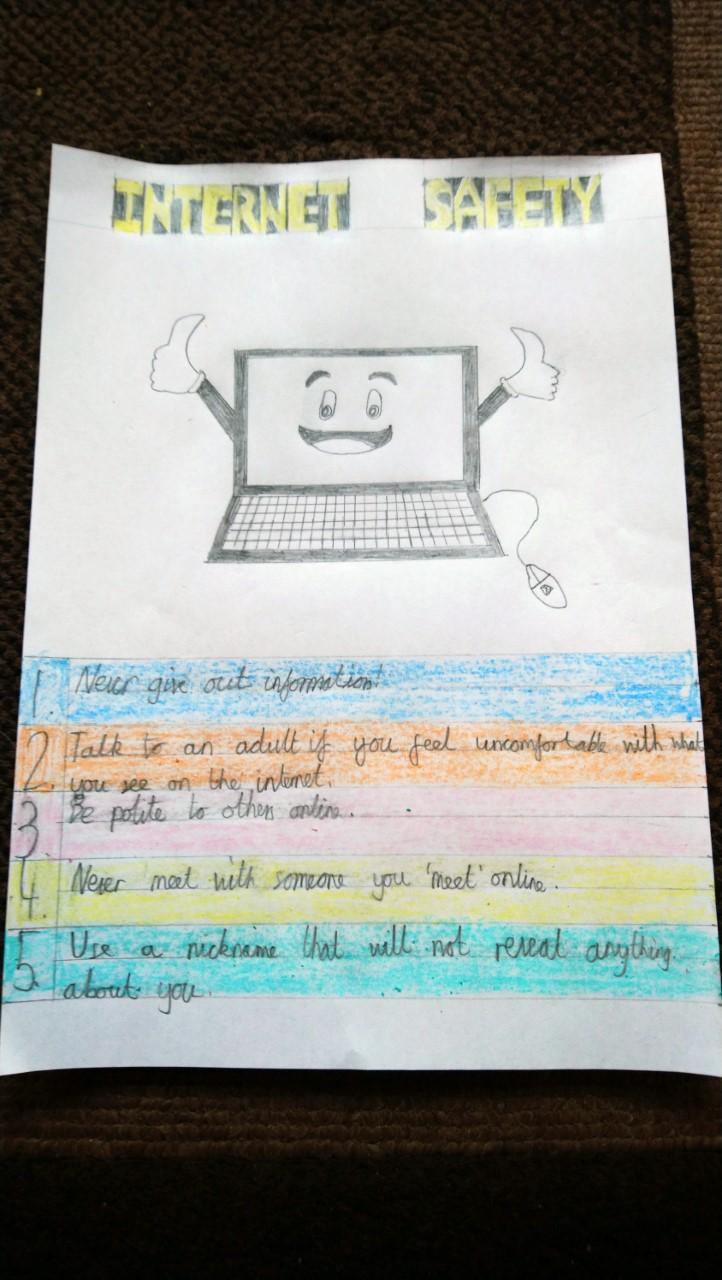 INTERNET SAFETY
1. Never give out information!
2. Talk to an adult if you feel uncomfortable with what
you see on the internet.
3 Be polite to others online.
4. Never meet with someone you 'meet' online.
5. Use a nickname that will not reveal anything
about you.